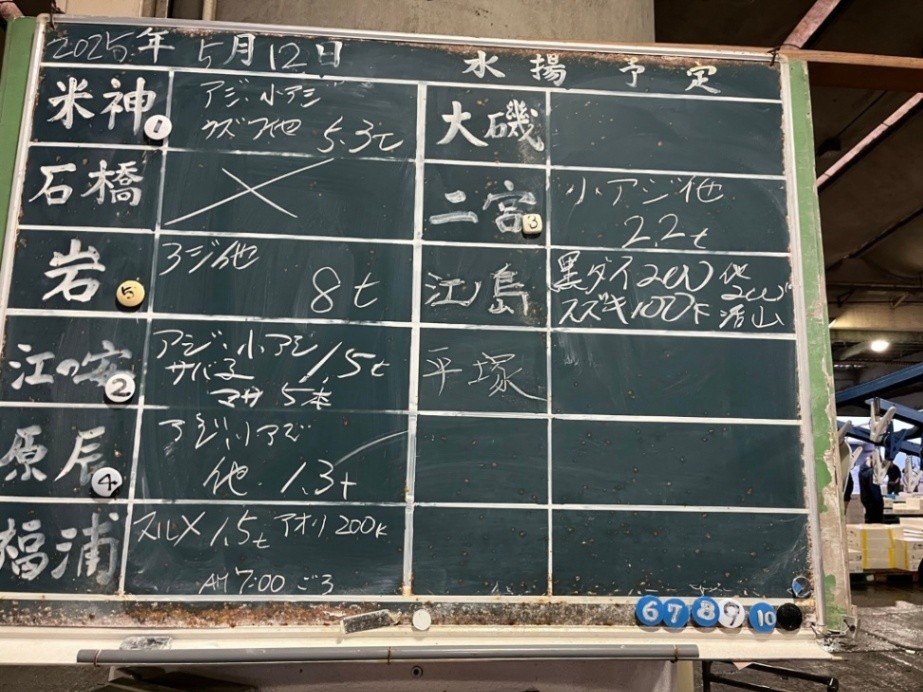 2025年 5月12日 水揚予定
米神 ①
アジ、小アジ
ウズワ他 5.3t
石橋
岩 5
アジ他
8t
江の安 ②
アジ、小アジ
サバ子 1.5t
マサ 5本
原辰 ④
アジ、小アジ
他 1.3t
福浦
スルメ 1.5t アオリ 200k
AM 7:00 ごろ
大磯
二宮 3
小アジ他
2.2t
江ノ島
黒ダイ200 他
スズキ100k 活山
平塚
6 7 8 9 10